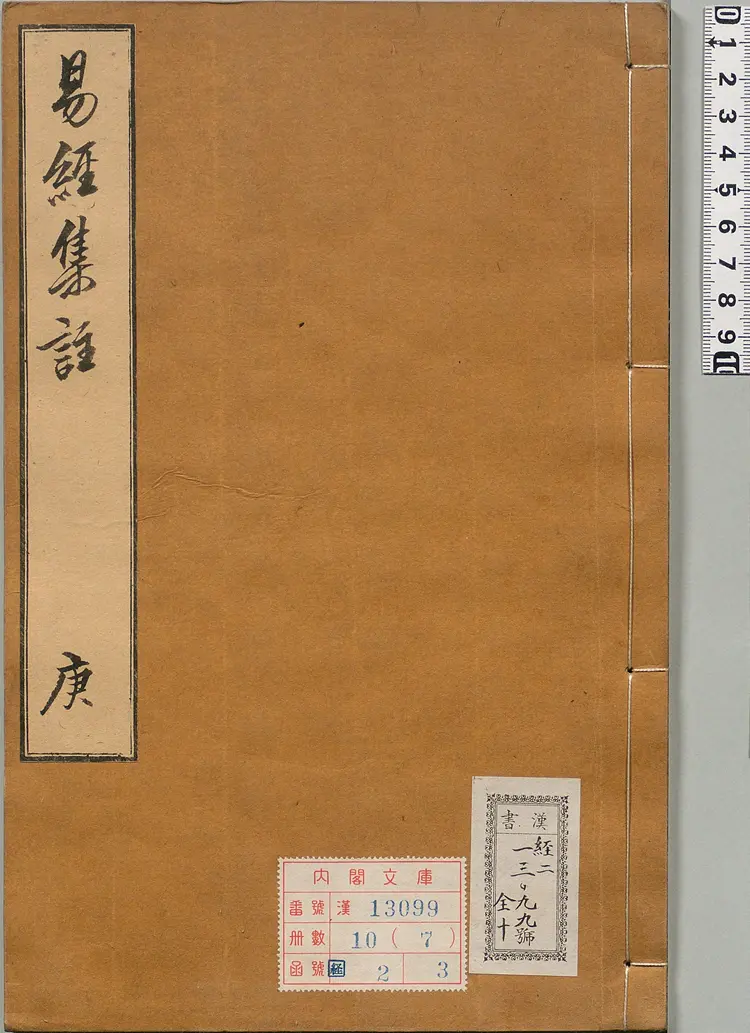 易經集註
庚
漢書
經二
一三〇九九號
全十
內閣文庫
番號 漢 13099
冊數 10 ( 7 )
函號 經 2 3
0 1 2 3 4 5 6 7 8 9 10